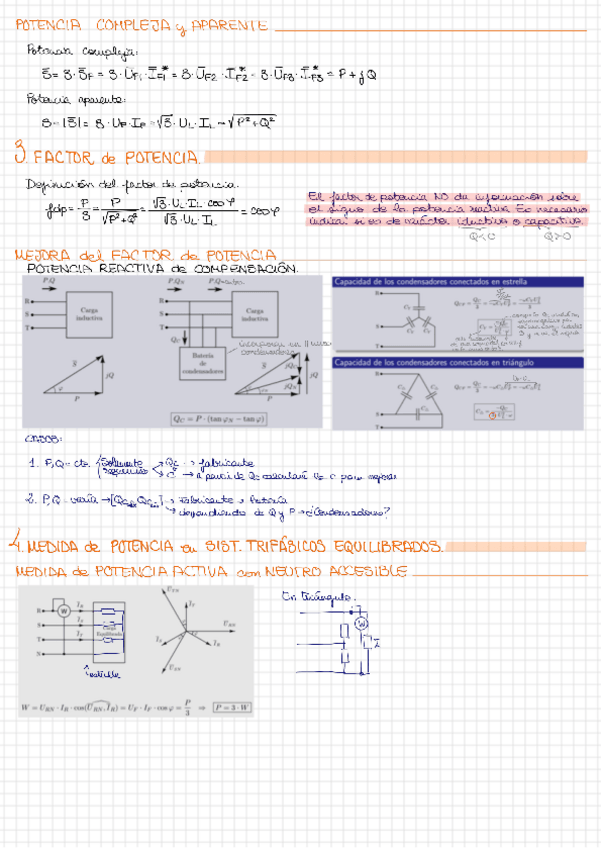 POTENCIA COMPLEJA y APARENTE
Potencia compleja:
S̄ = 3·S̄F = 3·ŪF1·ĪF1* = 3·ŪF2·ĪF2* = 3·ŪF3·ĪF3* = P + jQ
Potencia aparente:
S = |S̄| = 3·UF·IF = √3·UL·IL = √P²+Q²
3. FACTOR de POTENCIA.
Definición del factor de potencia.
fdp = P/S = P/√P²+Q² = √3·UL·IL·cos φ/√3·UL·IL = cos φ
El factor de potencia NO da información sobre
el signo de la potencia reactiva. Es necesario
indicar si es de carácter inductivo o capacitivo.
Q<0 Q>0
MEJORA del FACTOR de POTENCIA
POTENCIA REACTIVA de COMPENSACIÓN.
P,Q
R
S
T
Carga
inductiva
P,QN
P,Q
R
S
T
Carga
inductiva
QC
Batería
de
condensadores
S̄
φ
P
jQ
S̄
P
jQC
jQN
jQ
QC = P · (tan φN − tan φ)
Capacidad de los condensadores conectados en estrella
R
S
T
Capacidad de los condensadores conectados en triángulo
R
S
T
CASOS:
1. P,Q = cte.
QC → fabricante
C → a partir de QC calcular C para mejorar
2. P,Q varía → [QC, QC] → fabricante → batería
dependiendo de Q y P → ¿Condensadores?
4. MEDIDA de POTENCIA en SIST. TRIFÁSICOS EQUILIBRADOS.
MEDIDA de POTENCIA ACTIVA con NEUTRO ACCESIBLE
R
S
T
N
W
IR
IS
IT
Carga
Equilibrada
estrella
UTN
URN
USN
IT
IR
IS
En triángulo.
W
Z
W = URN · IR · cos(URN, IR) = UF · IF · cos φ = P/3 ⇒ P = 3 · W